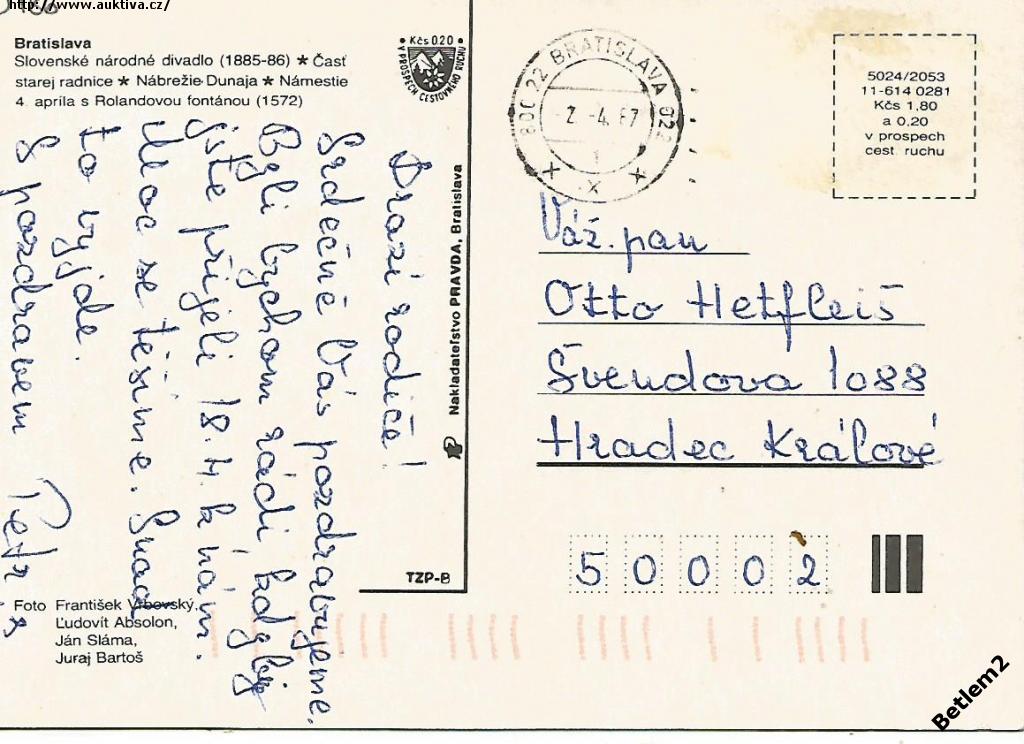 http://www.auktiva.cz/
Bratislava
Slovenské národné divadlo (1885-86) ★ Časť
starej radnice ★ Nábrežie Dunaja ★ Námestie
4. apríla s Rolandovou fontánou (1572)
• Kčs 020 •
V PROSPECH CESTOVNÉHO RUCHU
BRATISLAVA 022
-2.-4.87
1
5024/2053
11-614 0281
Kčs 1,80
a 0,20
v prospech
cest. ruchu
Drazí rodiče!
Srdečně Vás pozdravujeme.
Byli bychom rádi, kdyby
jste přijeli 18.4. k nám.
Moc se těšíme. Snad
to vyjde.
S pozdravem Petr
Nakladateľstvo PRAVDA, Bratislava
TZP-B
Váž. pan
Otto Hetfleiš
Švendova 1088
Hradec Králové
50002
Foto František Vrbovský,
Ľudovít Absolon,
Ján Sláma,
Juraj Bartoš
Betlem2